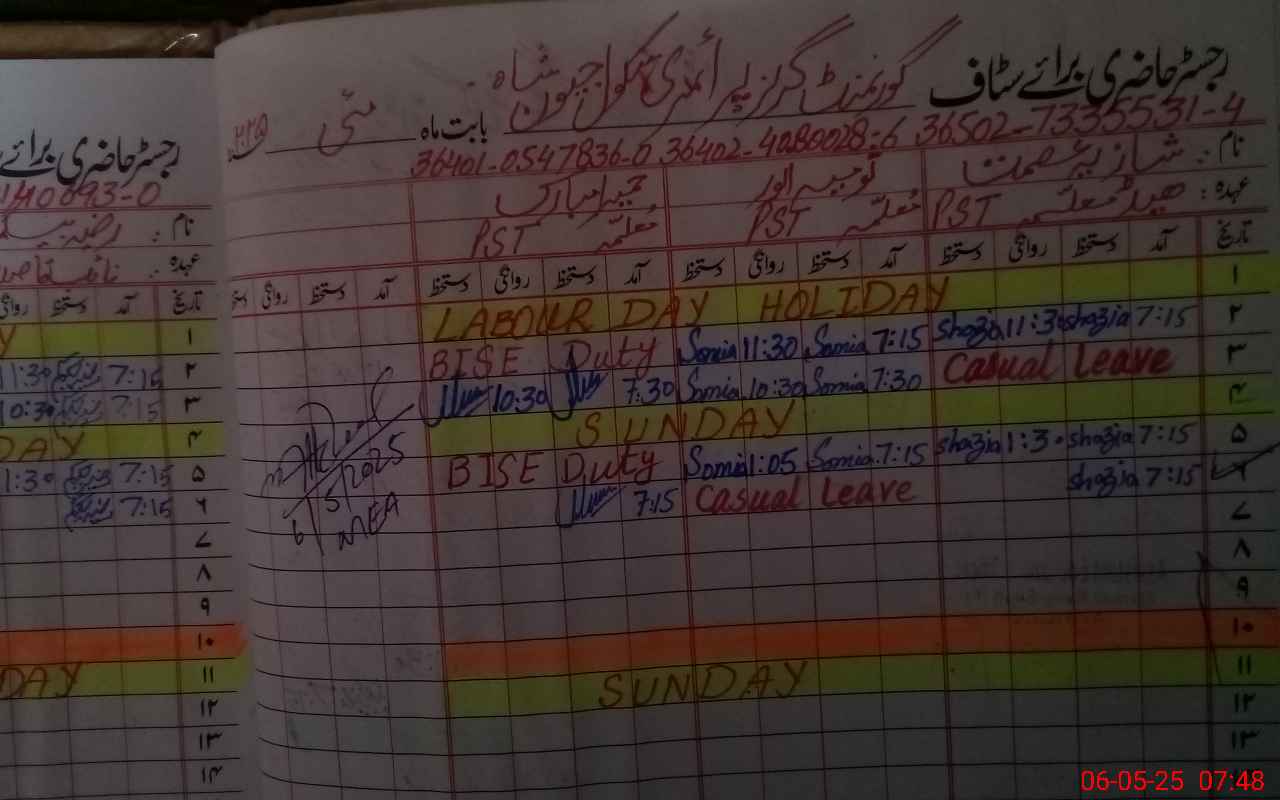 رجسٹر حاضری برائے سٹاف گورنمنٹ گرلز پرائمری سکول جیون شاہ بابت ماہ مئی ۲۰۲۵
36502-7335531-4 36402-4080028-6 36401-0547836-0
نام : شازیہ عصمت
عہدہ : ہیڈ معلمہ PST معلمہ PST معلمہ PST
تاریخ آمد دستخط روانگی دستخط آمد دستخط روانگی دستخط آمد دستخط روانگی دستخط آمد دستخط روانگی
۱ LABOUR DAY HOLIDAY
۲ 7:15 shazia 11:30 shazia 7:15 Somia 11:30 Somia BISE Duty
۳ Casual Leave 7:30 Somia 10:30 Somia 7:30 10:30
۴ SUNDAY
۵ 7:15 shazia 1:30 shazia 7:15 Somia 1:05 Somia BISE Duty
۶ 7:15 shazia Casual Leave 7:15
6/5/2025
MEA
۷
۸
۹
۱۰
۱۱ SUNDAY
۱۲
۱۳
رجسٹر حاضری برائے
140693-0
نام :
عہدہ :
تاریخ آمد دستخط
۱ Y
۲ 7:15 11:30
۳ 7:15 10:30
۴ DAY
۵ 7:15 1:30
۶ 7:15
۷
۸
۹
۱۰
۱۱ DAY
۱۲
۱۳
۱۴
06-05-25 07:48